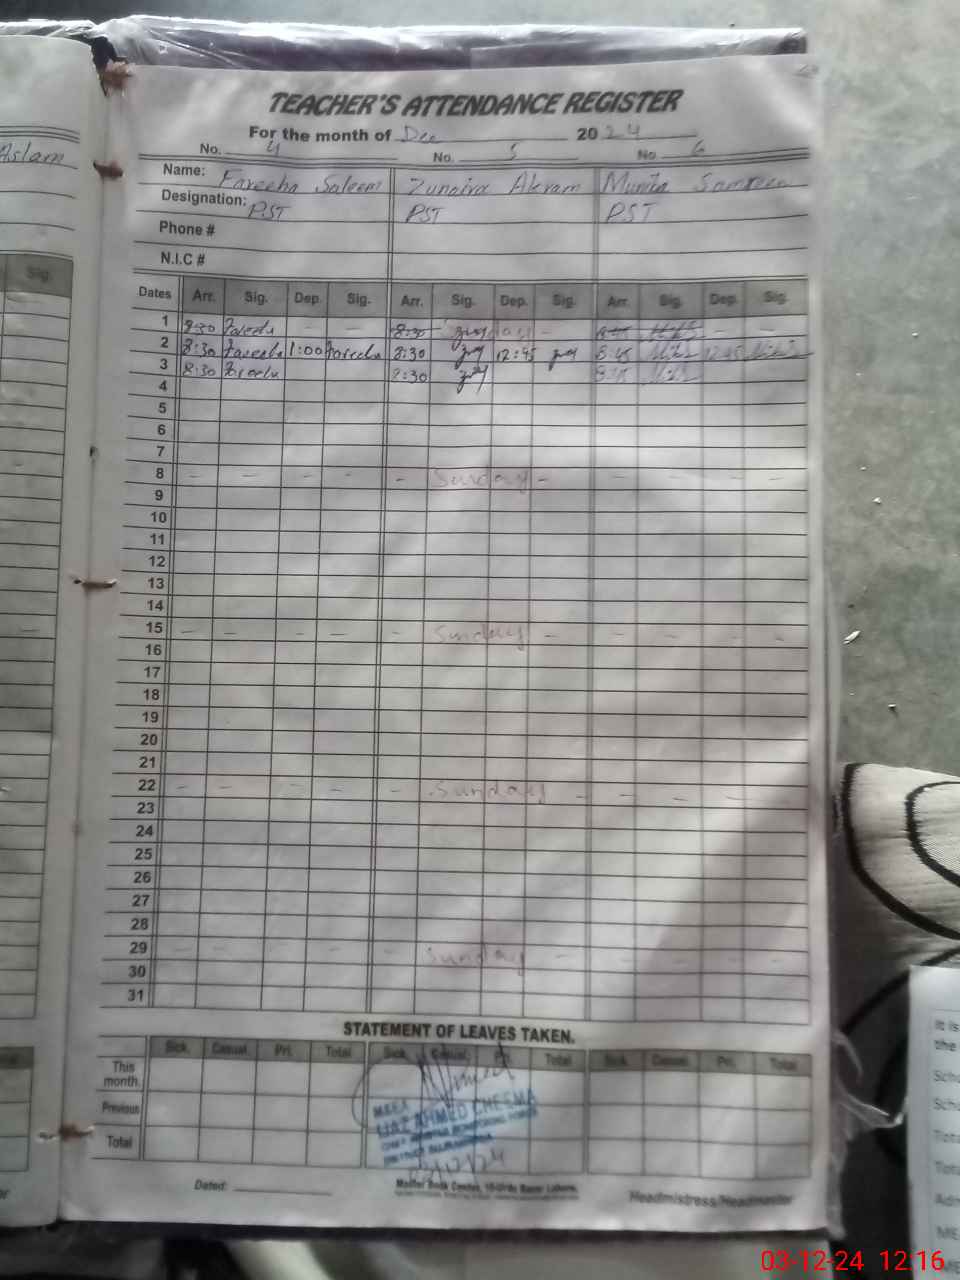 Aslam
Sig.
TEACHER'S ATTENDANCE REGISTER
For the month of Dec 2024
No. 4 No. 5 No. 6
Name: Fareeha Saleem Zunaira Akram
Designation: PST PST PST
Phone #
N.I.C #
Dates Arr. Sig. Dep. Sig. Arr. Sig. Dep. Sig. Arr. Sig. Dep. Sig.
1 8:30 Fareeha - - 8:30 Sunday - - -
2 8:30 Fareeha 1:00 Fareeha 8:30 12:45 8:45 12:45
3 8:30 Fareeha 8:30 8:45
4
5
6
7
8 - - - - - Sunday - - - - -
9
10
11
12
13
14
15 - - - - - Sunday - - - - -
16
17
18
19
20
21
22 - - - - - Sunday - - - - -
23
24
25
26
27
28
29 - - - - Sunday - - - - -
30
31
STATEMENT OF LEAVES TAKEN.
Sick. Casual. Pri. Total Sick. Casual. Pri. Total Sick. Casual. Pri. Total
This month.
Previous
Total
MEEA
IJAZ AHMED CHEEMA
03/12/24
Dated: Master Book Centre, 10-Urdu Bazar Lahore. Headmistress/Headmaster
It is
the
Scho
Scho
Tota
Tota
Adm
ME
03-12-24 12:16